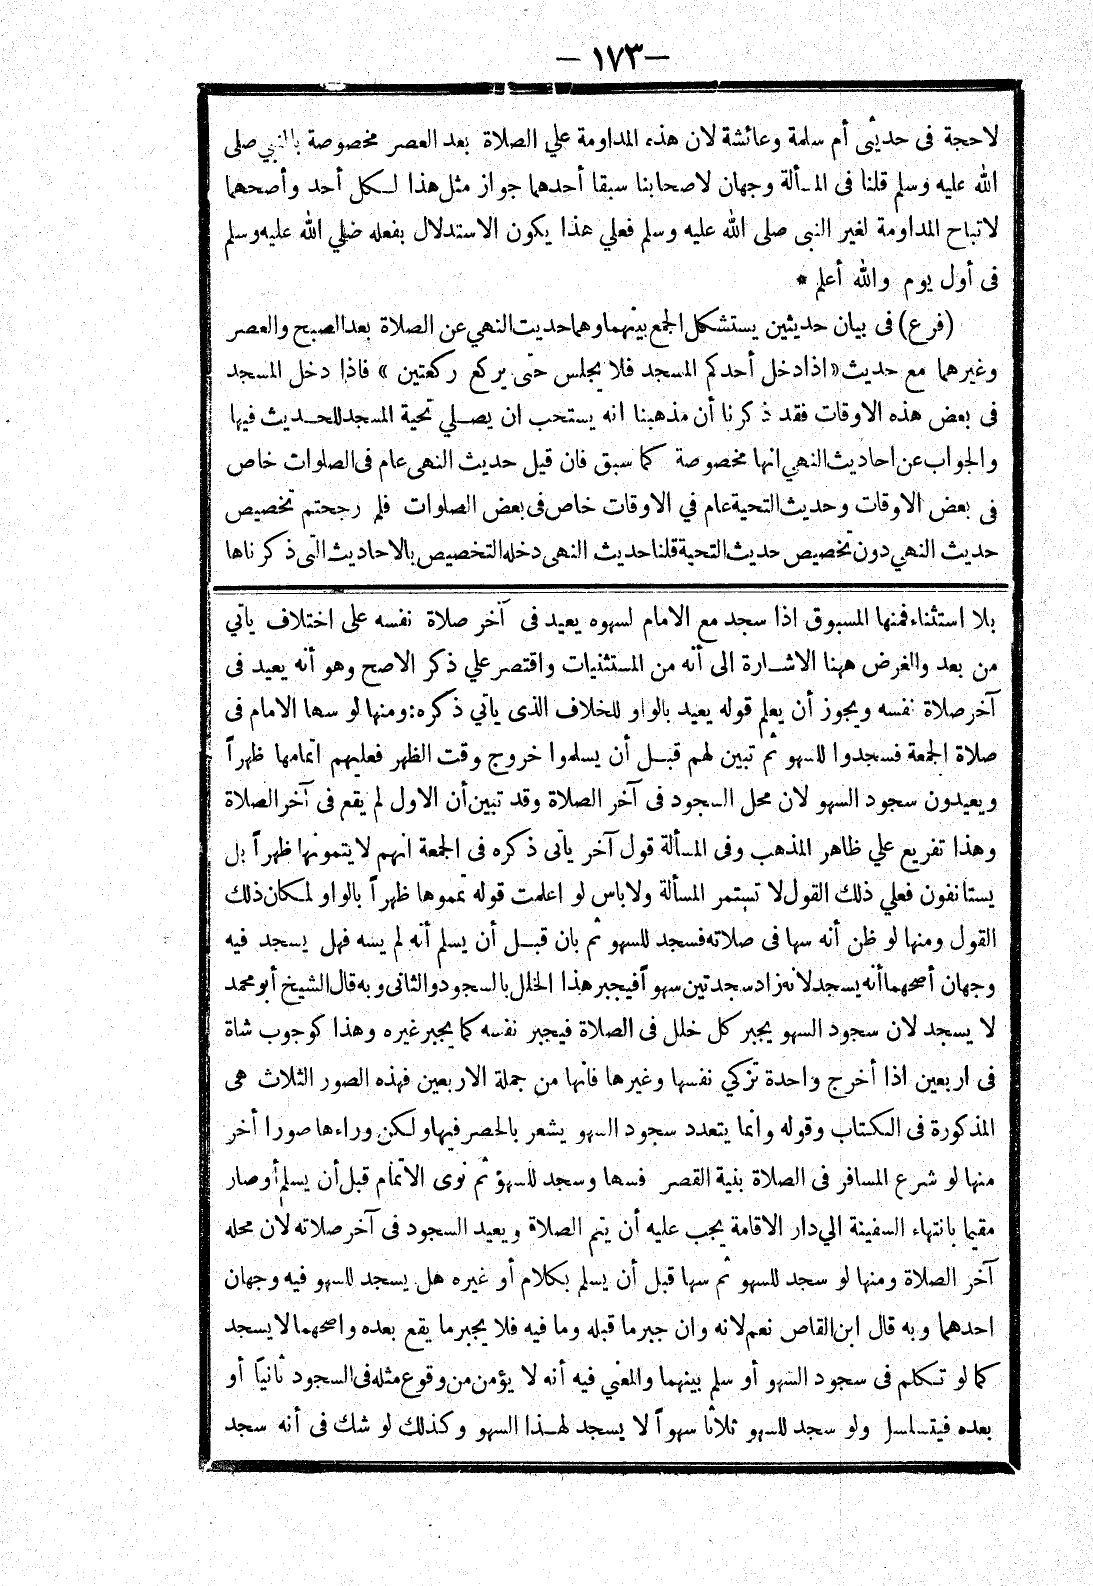 — ١٧٣ —
لاحجة فى حديثى أم سلمة وعائشة لان هذه المداومة علي الصلاة بعد العصر مخصوصة بالنبي صلى
الله عليه وسلم قلنا فى المسألة وجهان لاصحابنا سبقا أحدهما جواز مثل هذا لكل أحد وأصحهما
لاتباح المداومة لغير النبى صلى الله عليه وسلم فعلي هذا يكون الاستدلال بفعله صلي الله عليه وسلم
فى أول يوم والله أعلم *
(فرع) فى بيان حديثين يستشكل الجمع بينهما وهما حديث النهي عن الصلاة بعد الصبح والعصر
وغيرهما مع حديث « اذا دخل أحدكم المسجد فلا يجلس حتى يركع ركعتين » فاذا دخل المسجد
فى بعض هذه الاوقات فقد ذكرنا أن مذهبنا انه يستحب ان يصلي تحية المسجد للحديث فيها
والجواب عن احاديث النهي انها مخصوصة كما سبق فان قيل حديث النهى عام فى الصلوات خاص
فى بعض الاوقات وحديث التحية عام في الاوقات خاص فى بعض الصلوات فلم رجحتم تخصيص
حديث النهي دون تخصيص حديث التحية قلنا حديث النهى دخله التخصيص بالاحاديث التى ذكرناها
بلا استثناء فمنها المسبوق اذا سجد مع الامام لسهوه يعيد فى آخر صلاة نفسه على اختلاف يأتي
من بعد والغرض ههنا الاشارة الى أنه من المستثنيات واقتصر علي ذكر الاصح وهو أنه يعيد فى
آخر صلاة نفسه ويجوز أن يعلم قوله يعيد بالواو للخلاف الذى يأتي ذكره: ومنها لو سها الامام فى
صلاة الجمعة فسجدوا للسهو ثم تبين لهم قبل أن يسلموا خروج وقت الظهر فعليهم اتمامها ظهراً
ويعيدون سجود السهو لان محل السجود فى آخر الصلاة وقد تبين أن الاول لم يقع فى آخر الصلاة
وهذا تفريع علي ظاهر المذهب وفى المسألة قول آخر يأتى ذكره فى الجمعة انهم لا يتمونها ظهراً بل
يستانفون فعلي ذلك القول لا تستمر المسألة ولا باس لو اعلمت قوله تمموها ظهراً بالواو لمكان ذلك
القول ومنها لو ظن أنه سها فى صلاته فسجد للسهو ثم بان قبل أن يسلم أنه لم يسه فهل يسجد فيه
وجهان أصحهما أنه يسجد لانه زاد سجدتين سهواً فيجبر هذا الخلل بالسجود والثانى وبه قال الشيخ أبو محمد
لا يسجد لان سجود السهو يجبر كل خلل فى الصلاة فيجبر نفسه كما يجبر غيره وهذا كوجوب شاة
فى اربعين اذا أخرج واحدة تزكي نفسها وغيرها فانها من جملة الاربعين فهذه الصور الثلاث هى
المذكورة فى الكتاب وقوله وانما يتعدد سجود السهو يشعر بالحصر فيها ولكن وراءها صورا أخر
منها لو شرع المسافر فى الصلاة بنية القصر فسها وسجد للسهو ثم نوى الاتمام قبل أن يسلم أو صار
مقيما بانتهاء السفينة الي دار الاقامة يجب عليه أن يتم الصلاة ويعيد السجود فى آخر صلاته لان محله
آخر الصلاة ومنها لو سجد للسهو ثم سها قبل أن يسلم بكلام أو غيره هل يسجد للسهو فيه وجهان
احدهما وبه قال ابن القاص نعم لانه وان جبر ما قبله وما فيه فلا يجبر ما يقع بعده واصحهما لا يسجد
كما لو تكلم فى سجود السهو أو سلم بينهما والمعني فيه أنه لا يؤمن من وقوع مثله فى السجود ثانياً أو
بعده فيتسلسل ولو سجد للسهو ثلاثا سهواً لا يسجد لهذا السهو وكذلك لو شك فى أنه سجد